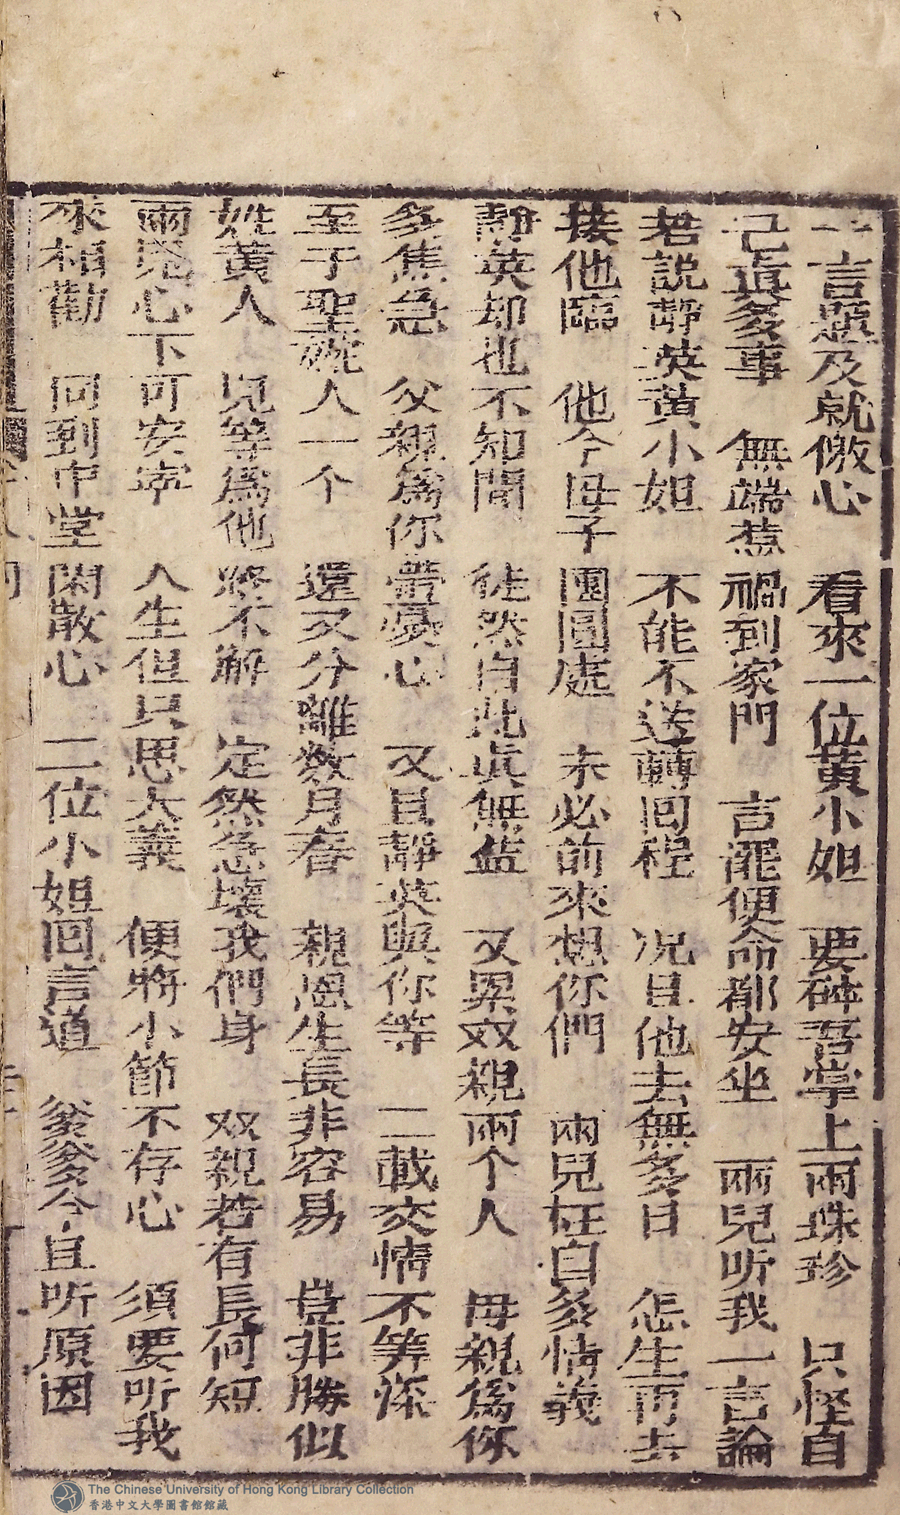 一言題及就傲心　看來一位黃小姐　要碎吾掌上兩珠珍　只怪自
己真多事　無端惹禍到家門　言罷便命都安坐　兩兒听我一言論
若説靜英黃小姐　不能不送轉回程　况且他去無多日　怎生再去
接他臨　他今母子團圓處　未必前來想你們　兩兒枉自多情義
靜英却也不知聞　徒然自此真無益　又累双親兩个人　母親爲你
多焦急　父親爲你帶憂心　又且靜英與你等　二載交情不算深
至于聖琬人一个　還又分離数月春　親恩生長非容易　豈非勝似
姓黃人　兒等爲他終不解　定然急壞我們身　双親若有長何短
兩兒心下可安寧　人生但只思大義　便將小節不存心　須要听我
來相勸　同到中堂閑散心　二位小姐回言道　爹爹今且听原因
The Chinese University of Hong Kong Library Collection
香港中文大學圖書館館藏